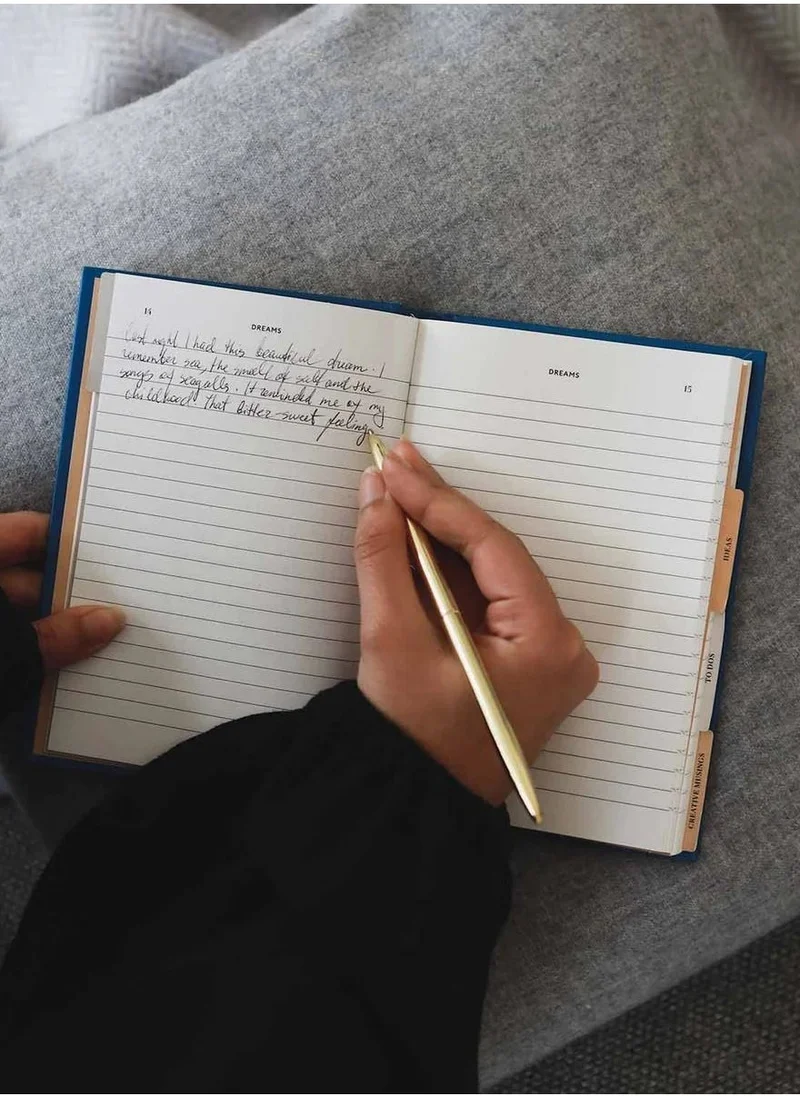 14
DREAMS
Last night I had this beautiful dream. I
remember sea, the smell of salt and the
songs of seagalls. It reminded me of my
childhood. That bitter-sweet feeling
DREAMS
15
IDEAS
TO DOS
CREATIVE MUSINGS